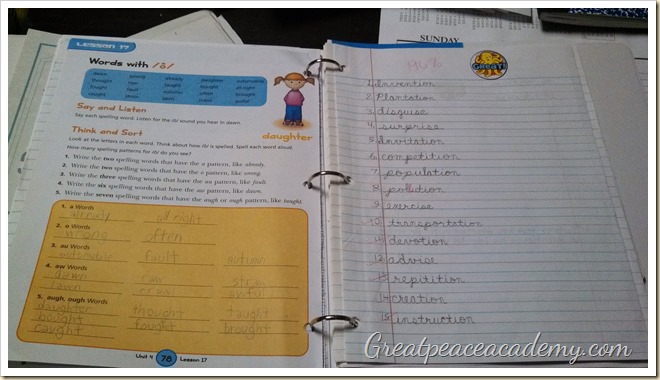 SUNDAY
Lesson 17
Words with /ô/
dawn wrong already daughter automobile
thought raw taught bought all right
fought fault autumn often brought
caught straw lawn crawl awful
Say and Listen
Say each spelling word. Listen for the /ô/ sound you hear in dawn.
Think and Sort
Look at the letters in each word. Think about how /ô/ is spelled. Spell each word aloud.
How many spelling patterns for /ô/ do you see?
daughter
1. Write the two spelling words that have the a pattern, like already.
2. Write the two spelling words that have the o pattern, like wrong.
3. Write the three spelling words that have the au pattern, like fault.
4. Write the six spelling words that have the aw pattern, like dawn.
5. Write the seven spelling words that have the augh or ough pattern, like taught.
1. a Words
already all right
2. o Words
wrong often
3. au Words
automobile fault autumn
4. aw Words
dawn raw straw
lawn crawl awful
5. augh, ough Words
daughter thought taught
bought fought brought
caught
Unit 4 78 Lesson 17
96%
GREAT!
1. Invention
2. Plantation
3. disguise
4. surprise
5. invitation
6. competition
7. population
8. pollution
9. exercise
10. transportation
11. devotion
12. advise
13. repitition
14. creation
15. instruction
Greatpeaceacademy.com